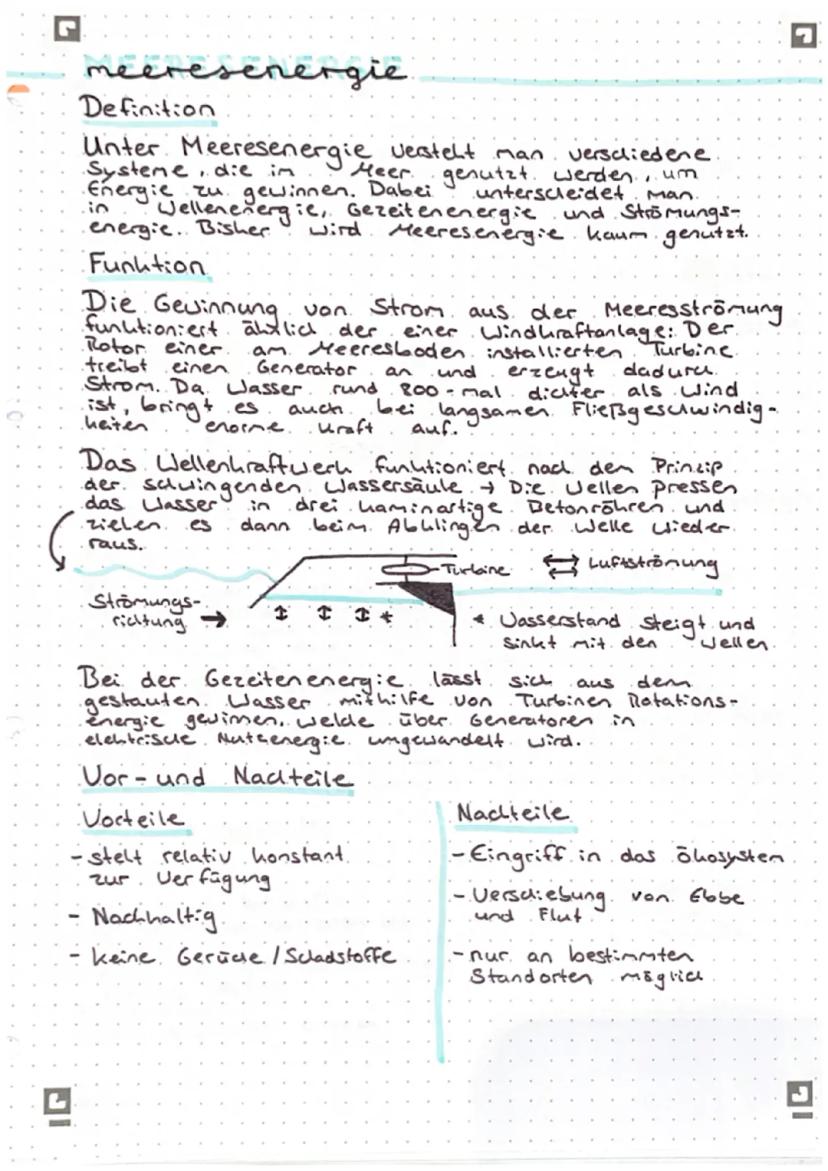 MEERESENERGIE
meeresenergie
Definition
Unter Meeresenergie versteht man verschiedene
Systeme, die im Meer genutzt werden, um
Energie zu gewinnen. Dabei unterscheidet man
in Wellenenergie, Gezeitenenergie und Strömungs-
energie. Bisher wird Meeresenergie kaum genutzt.
Funktion
Die Gewinnung von Strom aus der Meeresströmung
funktioniert ähnlich der einer Windkraftanlage: Der
Rotor einer am Meeresboden installierten Turbine
treibt einen Generator an und erzeugt dadurch
Strom. Da Wasser rund 800-mal dichter als Wind
ist, bringt es auch bei langsamen Fließgeschwindig-
keiten enorme Kraft auf.
Das Wellenkraftwerk funktioniert nach dem Prinzip
der schwingenden Wassersäule → Die Wellen pressen
das Wasser in drei kaminartige Betonröhren und
ziehen es dann beim Abklingen der Welle wieder
raus.
Turbine
Luftströmung
Strömungs-
richtung →
* Wasserstand steigt und
sinkt mit den Wellen
Bei der Gezeitenenergie lässt sich aus dem
gestauten Wasser mithilfe von Turbinen Rotations-
energie gewinnen, welche über Generatoren in
elektrische Nutzenergie umgewandelt wird.
Vor- und Nachteile
Vorteile
- steht relativ konstant
zur Verfügung
- Nachhaltig
- keine Gerüche / Schadstoffe
Nachteile
- Eingriff in das Ökosystem
- Verschiebung von Ebbe
und Flut
- nur an bestimmten
Standorten möglich